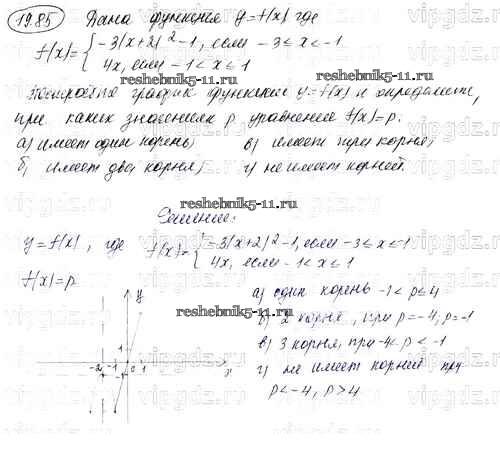 19.85 Дана функция y=f(x) где
f(x)= { -3(x+2)²-1, если -3≤x≤-1
4x, если -1<x≤1
Постройте график функции y=f(x) и определите,
reshebnik5-11.ru
при каких значениях p уравнение f(x)=p.
а) имеет один корень; в) имеет три корня;
б) имеет два корня; г) не имеет корней.
reshebnik5-11.ru
Решение:
y=f(x), где f(x)= { -3(x+2)²-1, если -3≤x≤-1
4x, если -1<x≤1
f(x)=p
y
reshebnik5-11.ru
а) один корень -1<p≤4
б) 2 корня, при p=-4; p=-1
в) 3 корня, при -4<p<-1
г) не имеет корней при
p<-4, p>4
1
-2 -1 0 1 x
reshebnik5-11.ru
vipgdz.ru